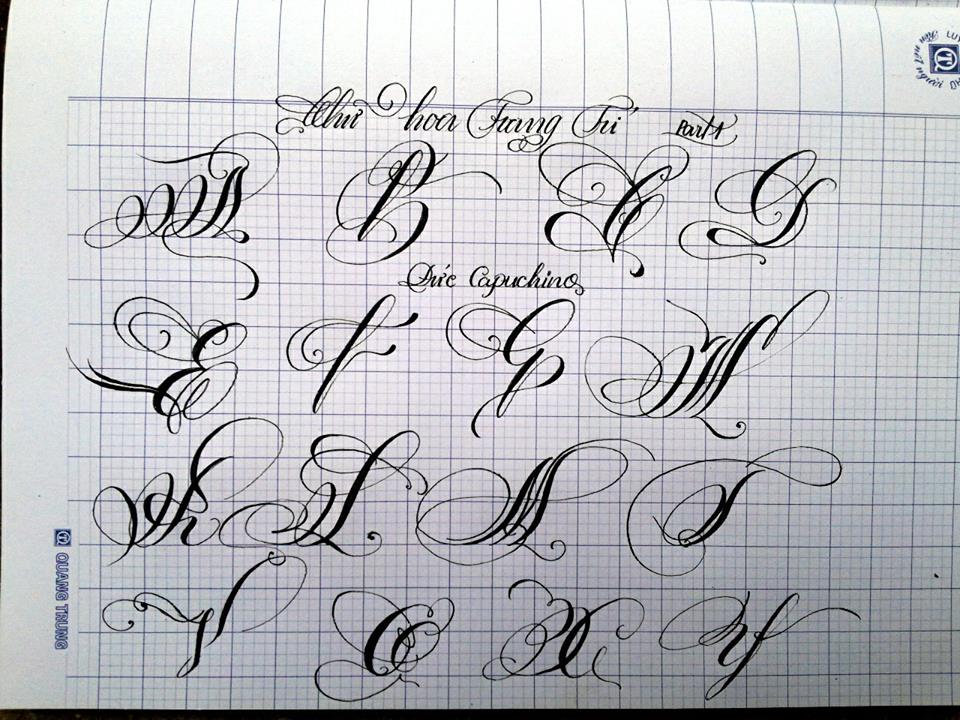 Chữ hoa Trang Trí Part 1
A B C G
Đức Capuchino
E F G M
K L M T
V O X Y
QUANG TRUNG